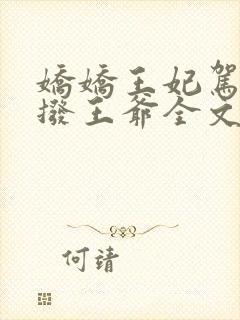 嬌嬌王妃駕
撥王爺全文
何靖